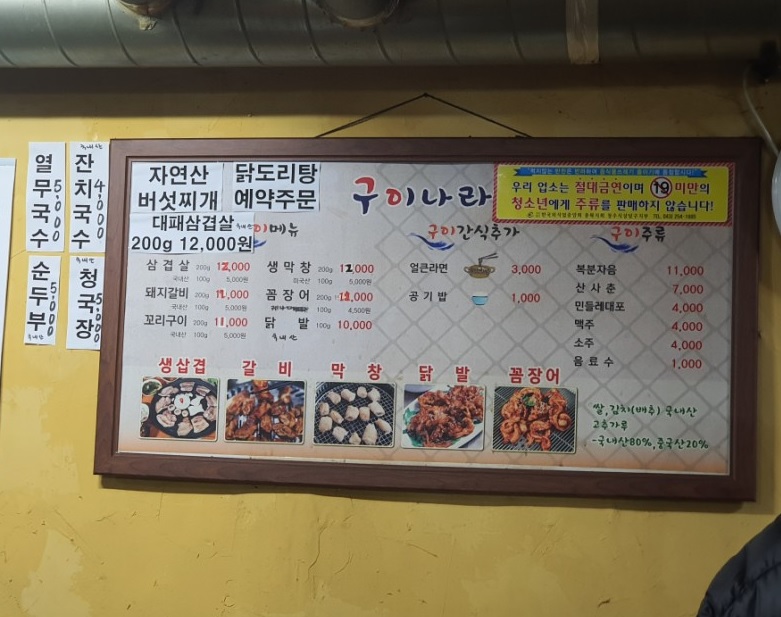 열무국수 5,000
국내산
잔치국수 4,000
순두부 5,000
국내산
국내산
청국장 5,000
자연산
버섯찌개
닭도리탕
예약주문
대패삼겹살 국내산
200g 12,000원
구이나라
우리 업소는 절대금연이며 19 미만의
청소년에게 주류를 판매하지 않습니다!
이메뉴
삼겹살 200g 12,000
국내산 100g 5,000원
돼지갈비 200g 12,000
국내산 100g 5,000원
꼬리구이 200g 11,000
국내산 100g 5,000원
생막창 200g 12,000
미국산 100g 5,000원
꼼장어 200g 12,000
100g 4,500원
닭발 100g 10,000
국내산
구이간식추가
얼큰라면 3,000
공기밥 1,000
구이주류
복분자음 11,000
산사춘 7,000
민들레대포 4,000
맥주 4,000
소주 4,000
음료수 1,000
생삼겹 갈비 막창 닭발 꼼장어
쌀,김치(배추) 국내산
고추가루
-국내산80%,중국산20%